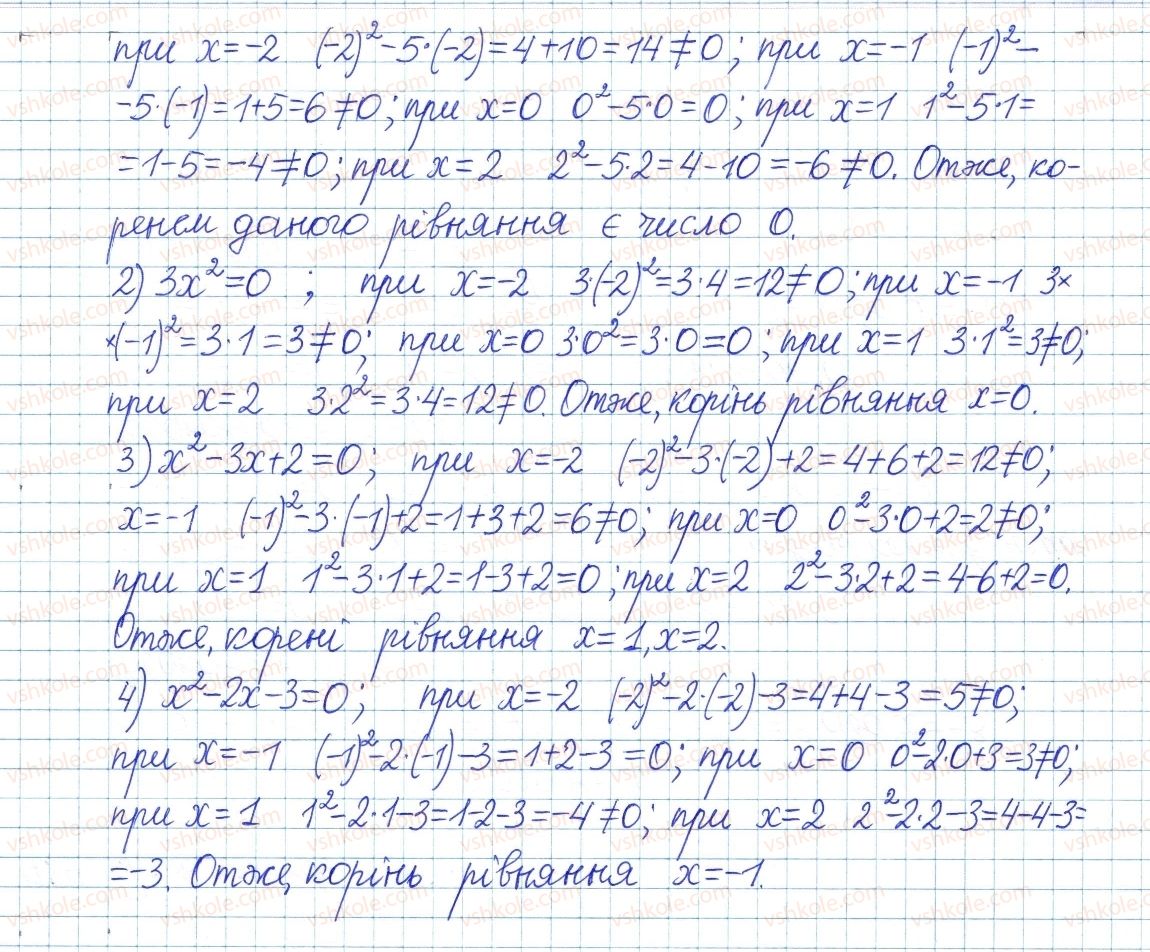 при x=-2 (-2)²-5·(-2)=4+10=14≠0; при x=-1 (-1)²-
-5·(-1)=1+5=6≠0; при x=0 0²-5·0=0; при x=1 1²-5·1=
=1-5=-4≠0; при x=2 2²-5·2=4-10=-6≠0. Отже, ко-
ренем даного рівняння є число 0.
2) 3x²=0 ; при x=-2 3·(-2)²=3·4=12≠0; при x=-1 3×
×(-1)²=3·1=3≠0; при x=0 3·0²=3·0=0; при x=1 3·1²=3≠0;
при x=2 3·2²=3·4=12≠0. Отже, корінь рівняння x=0.
3) x²-3x+2=0; при x=-2 (-2)²-3·(-2)+2=4+6+2=12≠0;
x=-1 (-1)²-3·(-1)+2=1+3+2=6≠0; при x=0 0²-3·0+2=2≠0;
при x=1 1²-3·1+2=1-3+2=0; при x=2 2²-3·2+2=4-6+2=0.
Отже, корені рівняння x=1, x=2.
4) x²-2x-3=0; при x=-2 (-2)²-2·(-2)-3=4+4-3=5≠0;
при x=-1 (-1)²-2·(-1)-3=1+2-3=0; при x=0 0²-2·0+3=3≠0;
при x=1 1²-2·1-3=1-2-3=-4≠0; при x=2 2²-2·2-3=4-4-3=
=-3. Отже, корінь рівняння x=-1.